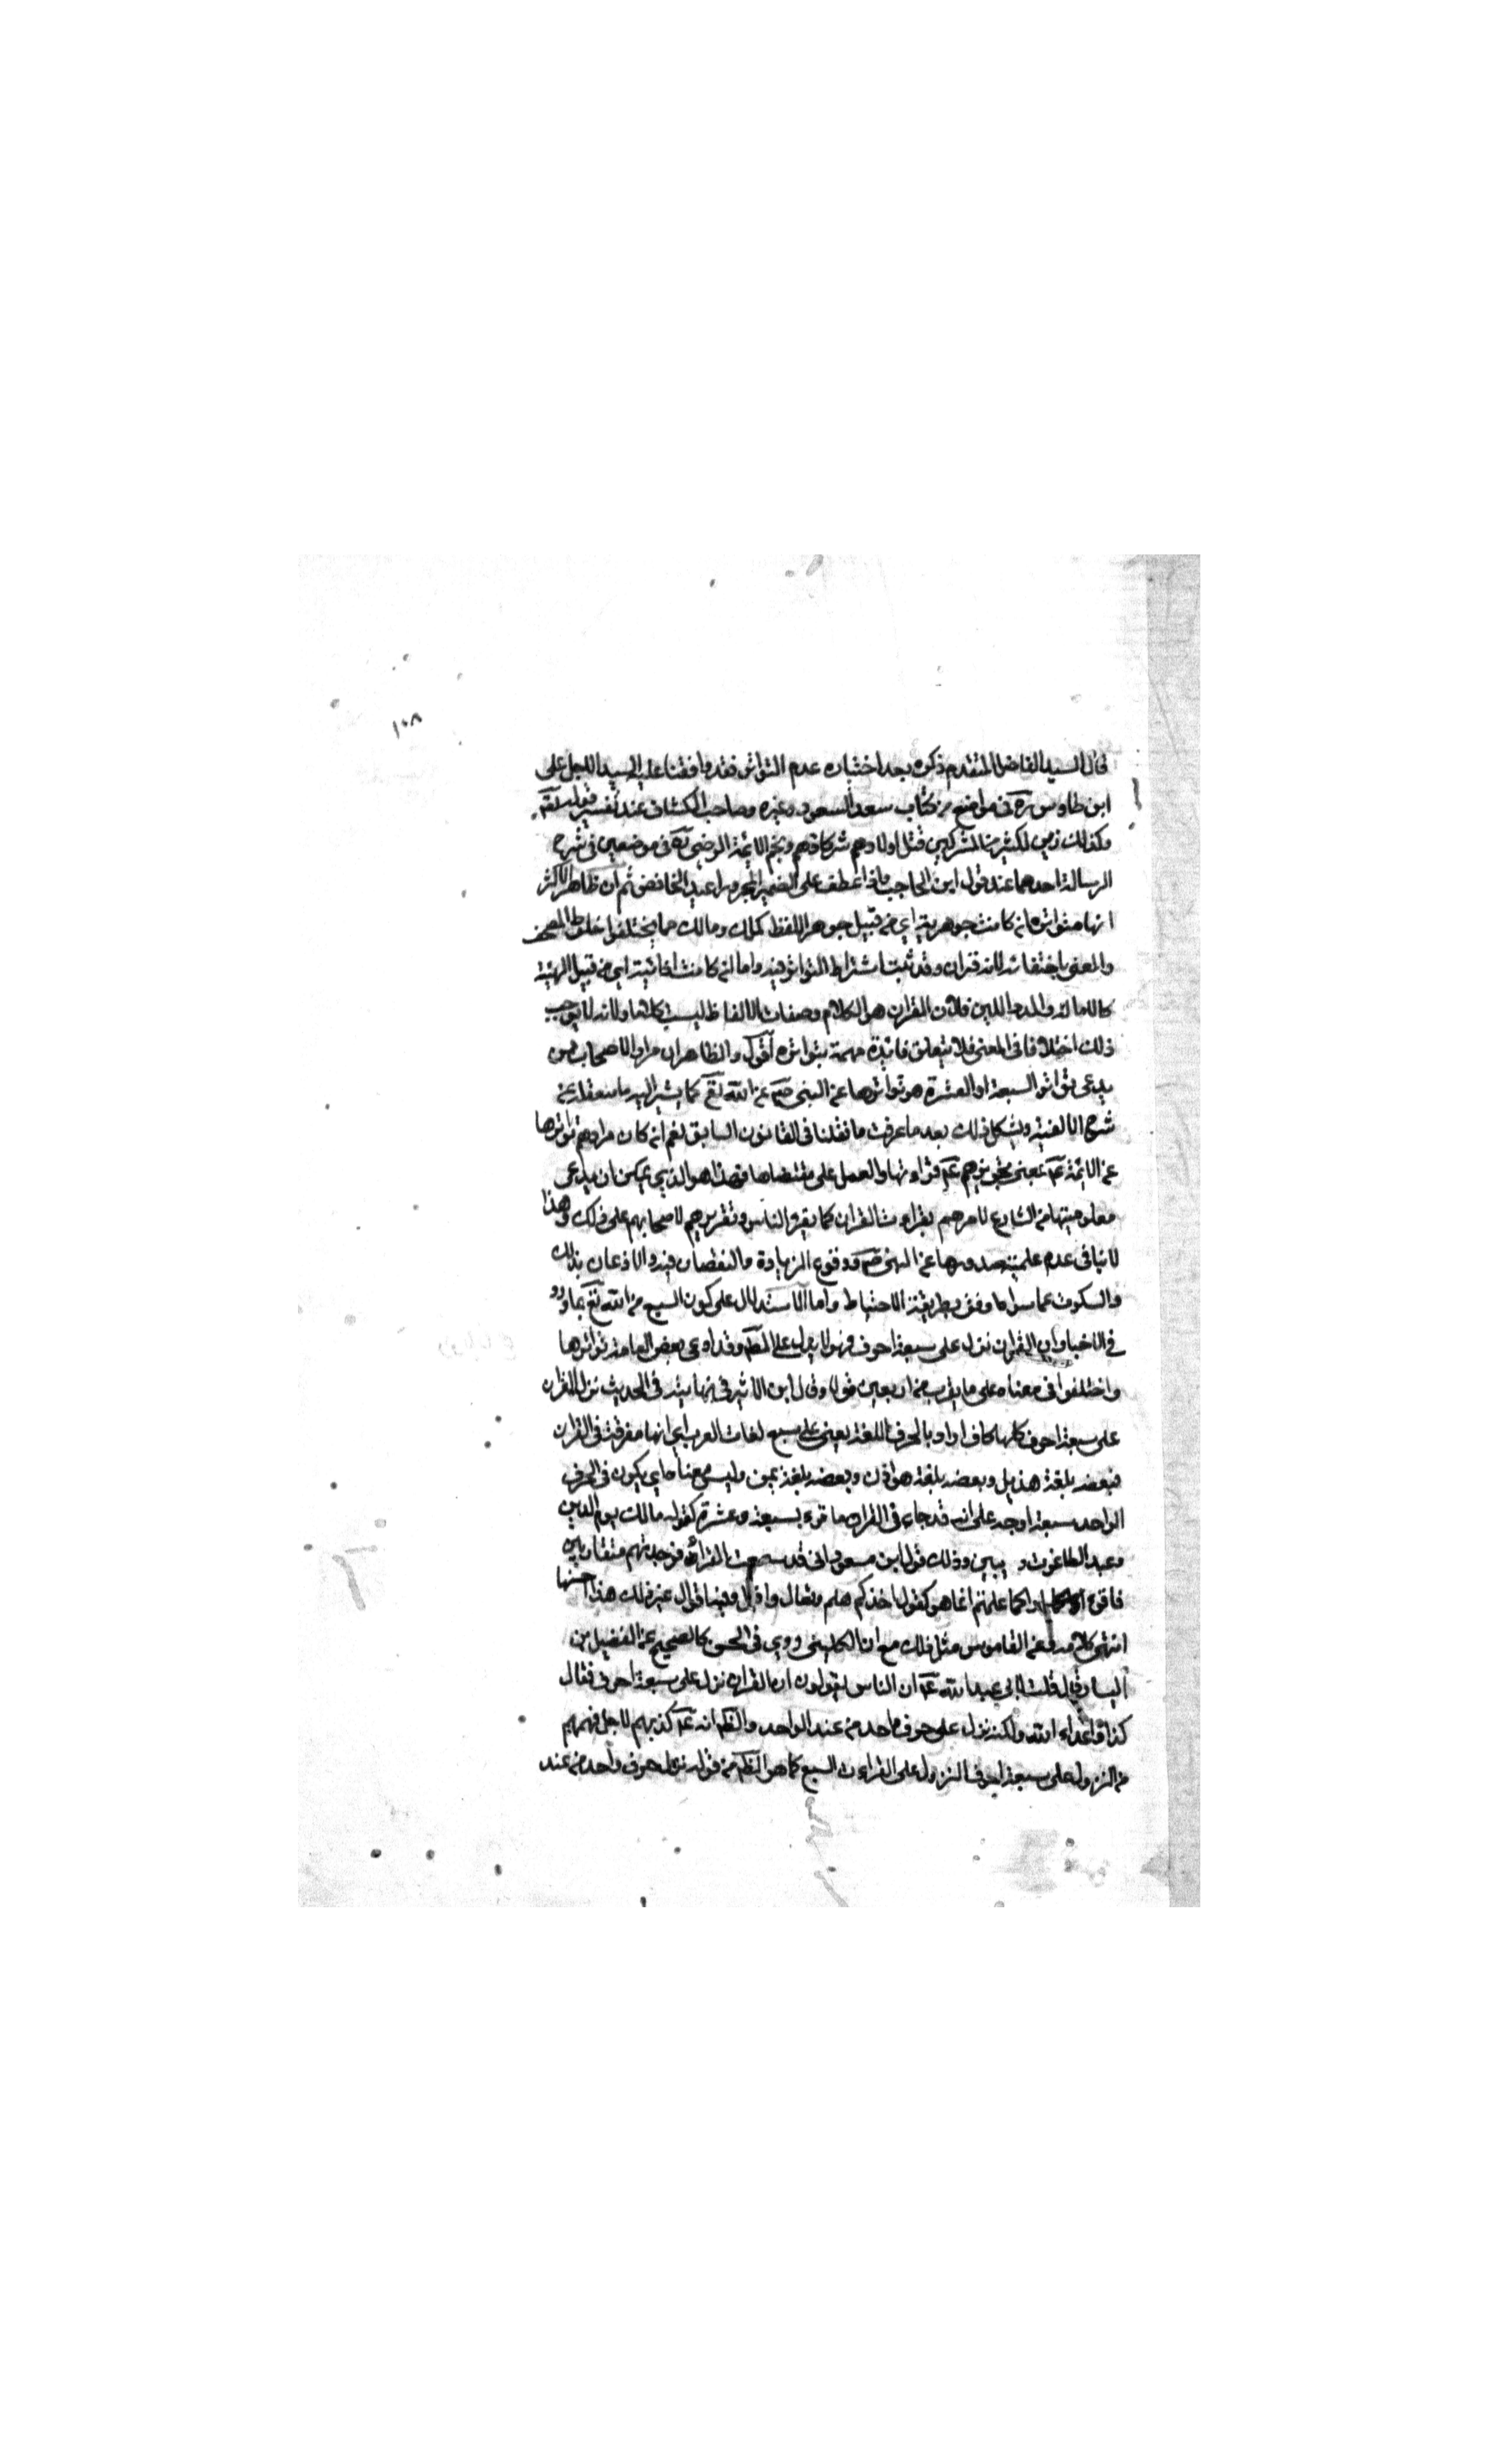 ١٠٨
قال السيد الفاضل المتقدم ذكره بعد اختياره عدم التواتر فقد وافقنا عليه السيد الاجل على
ابن طاوس ره فى مواضع من كتاب سعد السعود وغيره وصاحب الكشاف عند تفسير قوله تعم
وكذلك زين لكثير من المشركين قتل اولادهم شركاؤهم ونجم الائمة الرضى ره فى موضعين فى شرح
الرسالة احدهما عند قول ابن الحاجب واذا عطف على الضمير المجرور اعيد الخافض ثم ان ظاهر الاكثر
انها متواترة ان كانت جوهرية اى من قبيل جوهر اللفظ كملك ومالك مما يختلفوا خلط المصحف
والمعنى باختلافه لانه قران وقد ثبت اشتراط التواتر فيه واما ان كانت ادائية اى من قبيل الهيئة
كالامالة والمد واللين فلا لان القران هو الكلام وصفات الالفاظ ليست كلاما ولانه لا يوجب
ذلك اختلافا فى المعنى فلا يتعلق فائدة مهمة بتواتره اقول والظاهر ان مراد الاصحاب ممن
يدعى تواتر السبعة او العشرة هو تواترها عن النبى صم عن الله تعم كما يشير اليه ما سنقله عن
شرح الالفية ويشكل ذلك بعد ما عرفت ما نقلنا فى القانون السابق نعم ان كان مرادهم تواترها
عن الائمة عم بمعنى تجويزهم عم قراءتها والعمل على مقتضاها فهذا هو الذى يمكن ان يدعى
معلوميتها من الشارع لامرهم بقراءة القران كما يقرء الناس وتقريرهم لاصحابهم على ذلك وهذا
لا ينافى عدم علمية صدورها عن النبى صم ووقوع الزيادة والنقصان فيه والاذعان بذلك
والسكوت عما سواه اوفق بطريقة الاحتياط واما الاستدلال على كون السبع من الله تعم بما ورد
فى الاخبار ان القران نزل على سبعة احرف فهو لا يدل على المط وقد ادعى بعض العامة تواترها
واختلفوا فى معناه على ما يقرب من اربعين قولا وقال ابن الاثير فى نهايته فى الحديث نزل القران
على سبعة احرف كلها كاف اراد بالحرف اللغة يعنى على سبع لغات العرب اى انها مفرقة فى القران
فبعضه بلغة هذيل وبعضه بلغة هوازن وبعضه بلغة يمن وليس معناه اى يكون فى الحرف
الواحد سبعة اوجه على انه قد جاء فى القران ما قرء بسبعة وعشرة كقوله مالك يوم الدين
وعبد الطاغوت و يبين وذلك قول ابن مسعود انى قد سمعت القراء فوجدتهم متقاربين
فاقرء كما علمتم انما هو كقول احدكم هلم وتعال واقبل وفيها اقوال غير ذلك هذا احسنها
انتهى كلامه وعن القاموس مثل ذلك مع ان الكلينى روى فى الحسن كالصحيح عن الفضيل بن
اليسار قال قلت لابى عبد الله عم ان الناس يقولون ان القران نزل على سبعة احرف فقال
كذبوا اعداء الله ولكنه نزل على حرف واحد من عند الواحد والظ انه عم كذبهم لاجل فهمهم
من النزول على سبعة احرف النزول على القراءت السبع كما هو الظ من قوله نزل على حرف واحد من عند